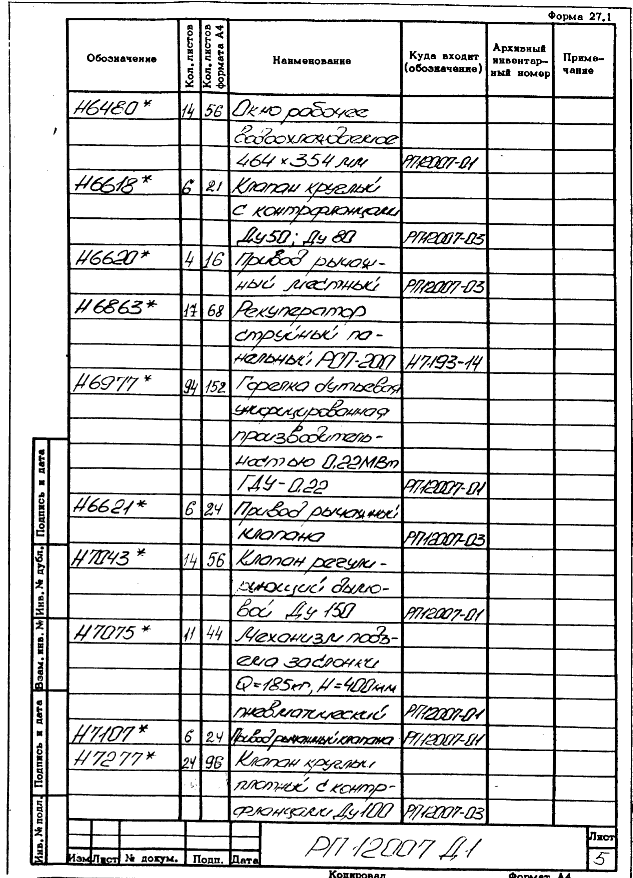 Форма 27.1
Обозначение Кол. листов Кол. листов формата А4 Наименование Куда входит (обозначение) Архивный инвентарный номер Примечание
Н6480* 14 56 Окно рабочее
водоохлаждаемое
464 × 354 мм РП12007-01
Н6618* 6 21 Клапан круглый
с контрфланцами
Ду50; Ду 80 РП12007-03
Н6620* 4 16 Привод рычаж-
ный местный РП12007-03
Н6863* 17 68 Рекуператор
струйный па-
нельный РСП-200 Н7193-14
Н6977* 94 152 Горелка дутьевая
унифицированная
производитель-
ностью 0,22МВт
ГДУ-0.22 РП12007-01
Н6621* 6 24 Привод рычажный
клапана РП12007-03
Н7043* 14 56 Клапан регули-
рующий дымо-
вой Ду 150 РП12007-01
Н7075* 11 44 Механизм подъ-
ема заслонки
Q=185кг, Н=400мм
пневматический РП12007-01
Н7107* 6 24 Привод рычажный клапана РП12007-01
Н7277* 24 96 Клапан круглый
плотный с контр-
фланцами Ду100 РП12007-03
Инв. № подл. Подпись и дата Взам. инв. № Инв. № дубл. Подпись и дата
РП 12007 Д1
Лист
5
Изм Лист № докум. Подп. Дата
Копировал Формат А4